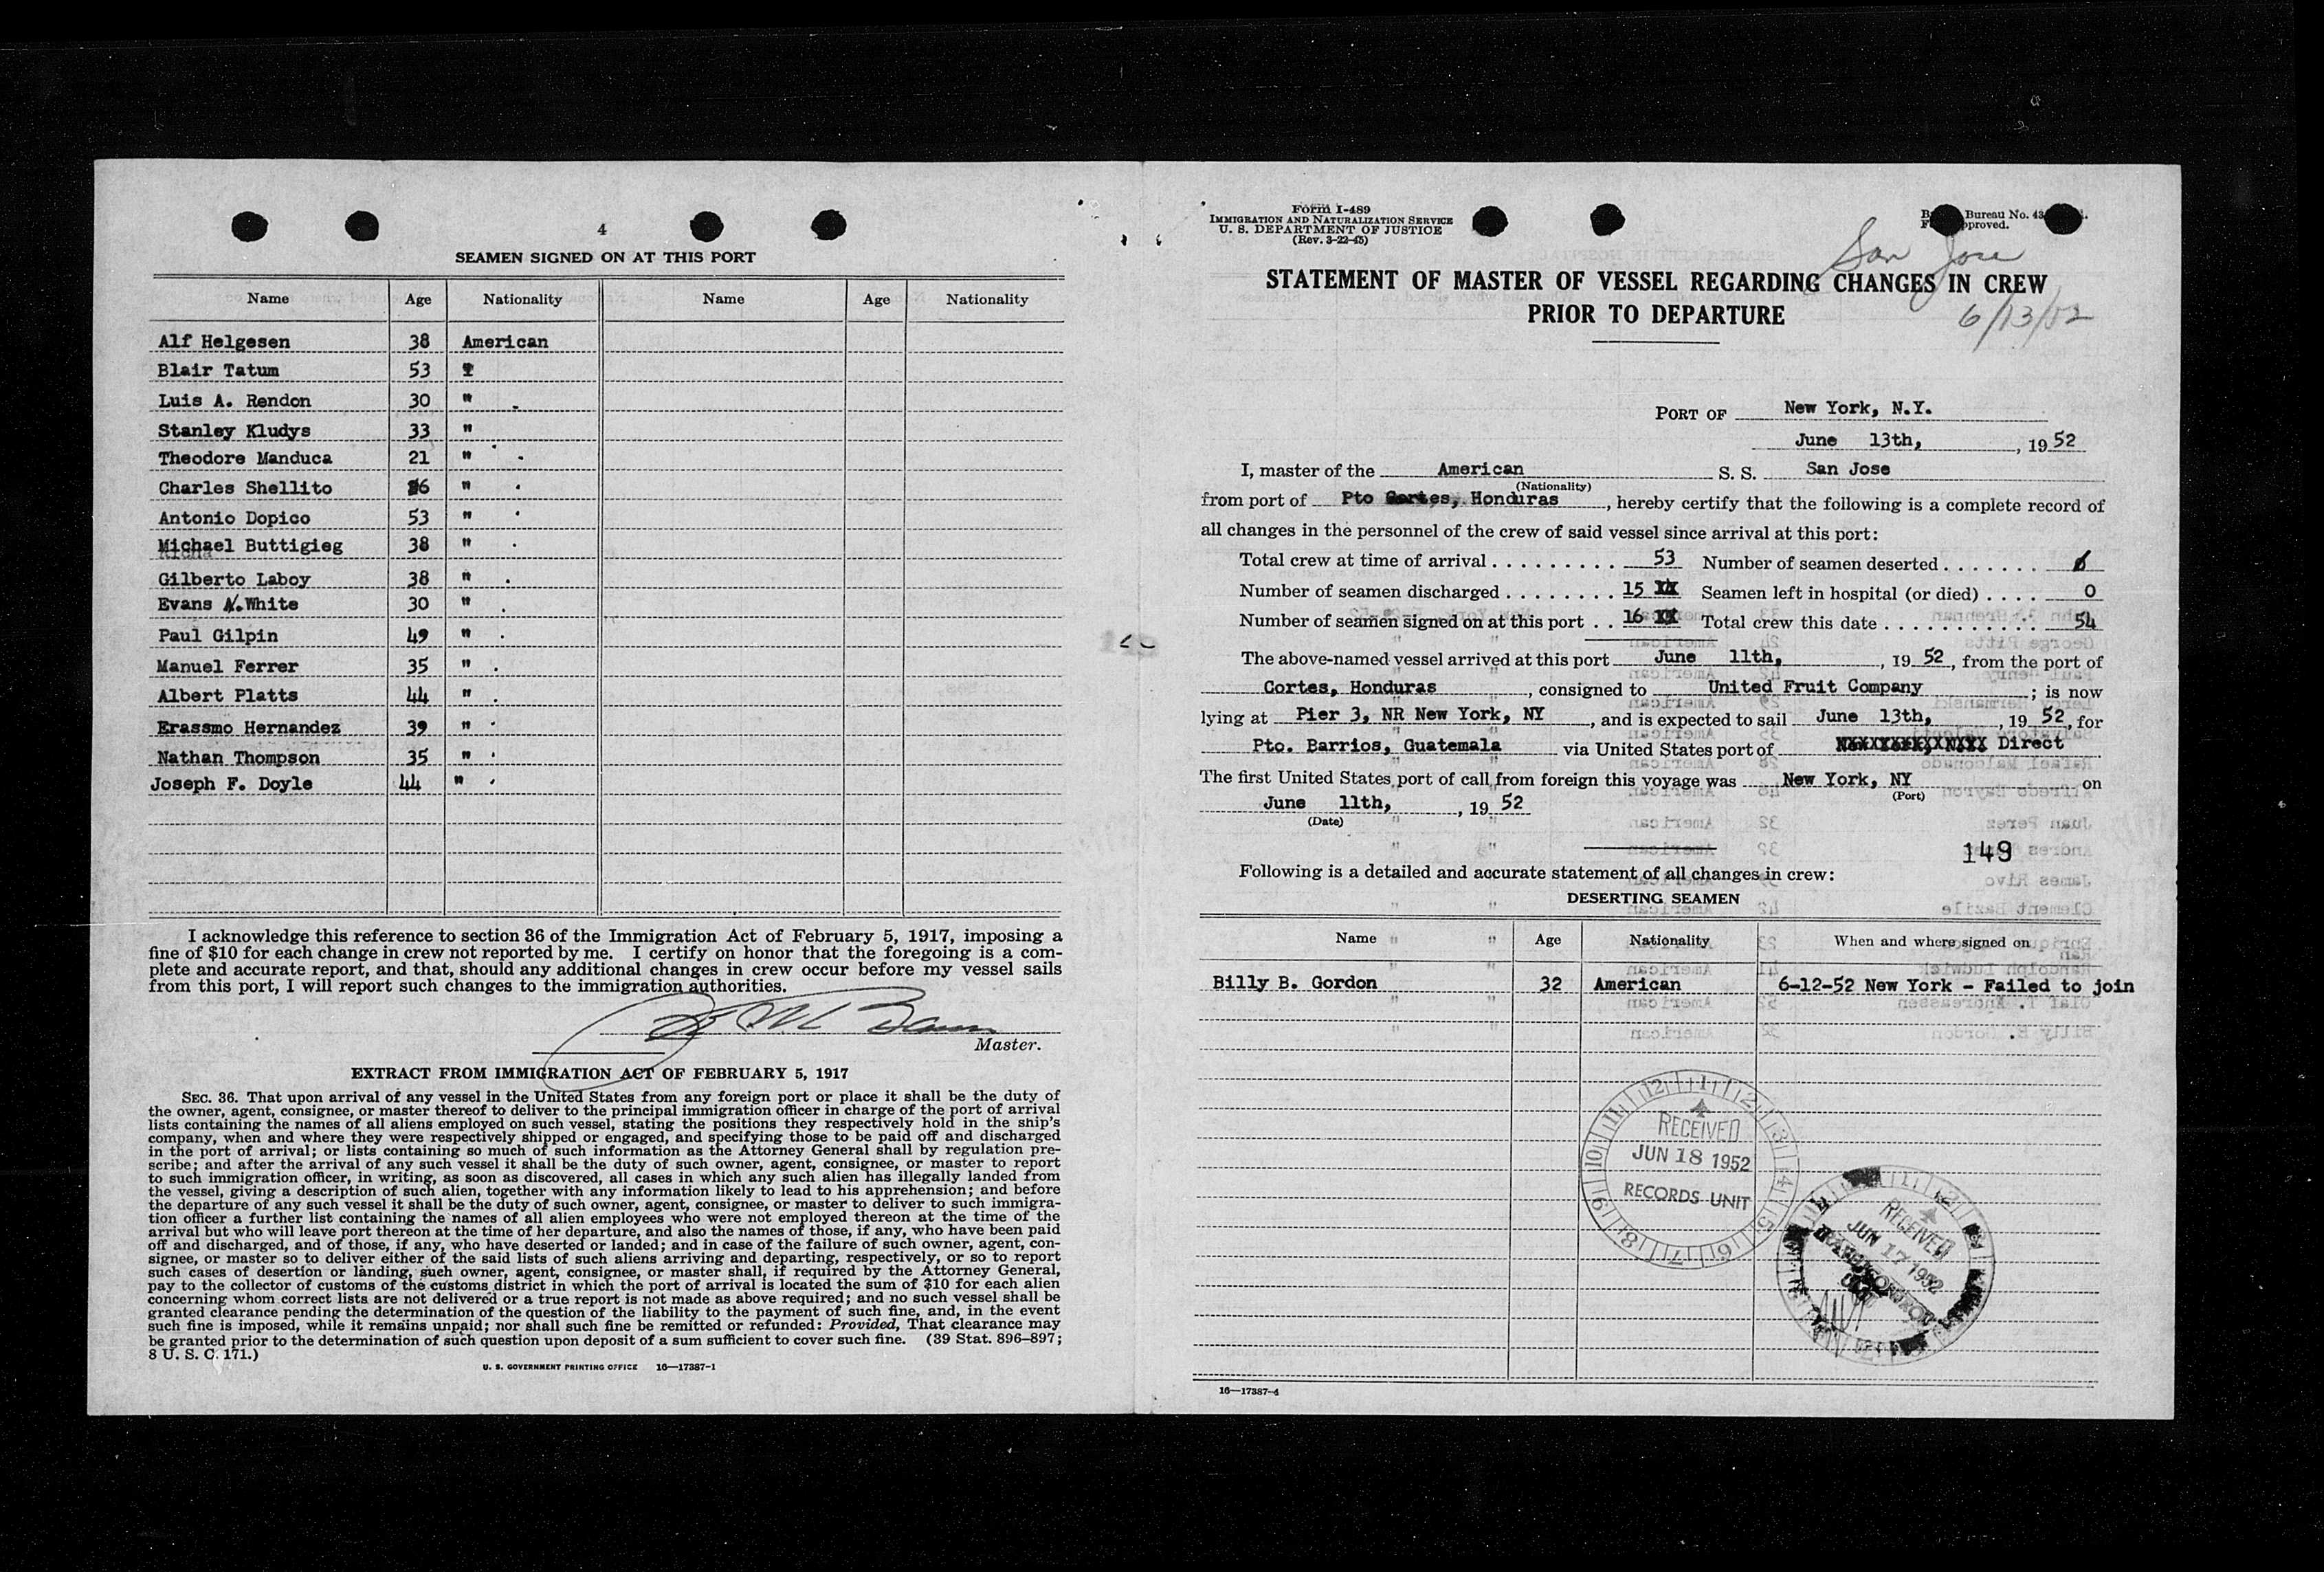 4
SEAMEN SIGNED ON AT THIS PORT
Name Age Nationality Name Age Nationality
Alf Helgesen 38 American
Blair Tatum 53 "
Luis A. Rendon 30 "
Stanley Kludys 33 "
Theodore Manduca 21 "
Charles Shellito 6 "
Antonio Dopico 53 "
Michael Buttigieg 38 "
Gilberto Laboy 38 "
Evans White 30 "
Paul Gilpin 49 "
Manuel Ferrer 35 "
Albert Platts 44 "
Erassmo Hernandez 39 "
Nathan Thompson 35 "
Joseph F. Doyle 44 "
I acknowledge this reference to section 36 of the Immigration Act of February 5, 1917, imposing a
fine of $10 for each change in crew not reported by me. I certify on honor that the foregoing is a com-
plete and accurate report, and that, should any additional changes in crew occur before my vessel sails
from this port, I will report such changes to the immigration authorities.
Master.
EXTRACT FROM IMMIGRATION ACT OF FEBRUARY 5, 1917
SEC. 36. That upon arrival of any vessel in the United States from any foreign port or place it shall be the duty of
the owner, agent, consignee, or master thereof to deliver to the principal immigration officer in charge of the port of arrival
lists containing the names of all aliens employed on such vessel, stating the positions they respectively hold in the ship's
company, when and where they were respectively shipped or engaged, and specifying those to be paid off and discharged
in the port of arrival; or lists containing so much of such information as the Attorney General shall by regulation pre-
scribe; and after the arrival of any such vessel it shall be the duty of such owner, agent, consignee, or master to report
to such immigration officer, in writing, as soon as discovered, all cases in which any such alien has illegally landed from
the vessel, giving a description of such alien, together with any information likely to lead to his apprehension; and before
the departure of any such vessel it shall be the duty of such owner, agent, consignee, or master to deliver to such immigra-
tion officer a further list containing the names of all alien employees who were not employed thereon at the time of the
arrival but who will leave port thereon at the time of her departure, and also the names of those, if any, who have been paid
off and discharged, and of those, if any, who have deserted or landed; and in case of the failure of such owner, agent, con-
signee, or master so to deliver either of the said lists of such aliens arriving and departing, respectively, or so to report
such cases of desertion or landing, such owner, agent, consignee, or master shall, if required by the Attorney General,
pay to the collector of customs of the customs district in which the port of arrival is located the sum of $10 for each alien
concerning whom correct lists are not delivered or a true report is not made as above required; and no such vessel shall be
granted clearance pending the determination of the question of the liability to the payment of such fine, and, in the event
such fine is imposed, while it remains unpaid; nor shall such fine be remitted or refunded: Provided, That clearance may
be granted prior to the determination of such question upon deposit of a sum sufficient to cover such fine. (39 Stat. 896–897;
8 U. S. C. 171.)
U. S. GOVERNMENT PRINTING OFFICE 16—17387-1
Form I-489
IMMIGRATION AND NATURALIZATION SERVICE
U. S. DEPARTMENT OF JUSTICE
(Rev. 3-22-45)
Bureau No. 43
pproved.
San Jose
6/13/52
STATEMENT OF MASTER OF VESSEL REGARDING CHANGES IN CREW
PRIOR TO DEPARTURE
PORT OF New York, N.Y.
June 13th, , 19 52
I, master of the American S. S. San Jose
(Nationality)
from port of Pto Cortes, Honduras , hereby certify that the following is a complete record of
all changes in the personnel of the crew of said vessel since arrival at this port:
Total crew at time of arrival . . . . . . . . . 53 Number of seamen deserted . . . . . . .
Number of seamen discharged . . . . . . . . 15 XX Seamen left in hospital (or died) . . . . 0
Number of seamen signed on at this port . . 16 XX Total crew this date . . . . . . . . . . . 54
The above-named vessel arrived at this port June 11th, , 19 52, from the port of
Cortes, Honduras , consigned to United Fruit Company ; is now
lying at Pier 3, NR New York, NY , and is expected to sail June 13th, , 19 52, for
Pto. Barrios, Guatemala via United States port of Direct
The first United States port of call from foreign this voyage was New York, NY on
(Port)
June 11th, , 19 52
(Date)
149
Following is a detailed and accurate statement of all changes in crew:
DESERTING SEAMEN
Name Age Nationality When and where signed on
Billy B. Gordon 32 American 6-12-52 New York - Failed to join
RECEIVED
JUN 18 1952
RECORDS UNIT
RECEIVED
JUN 17 1952
16—17387-4